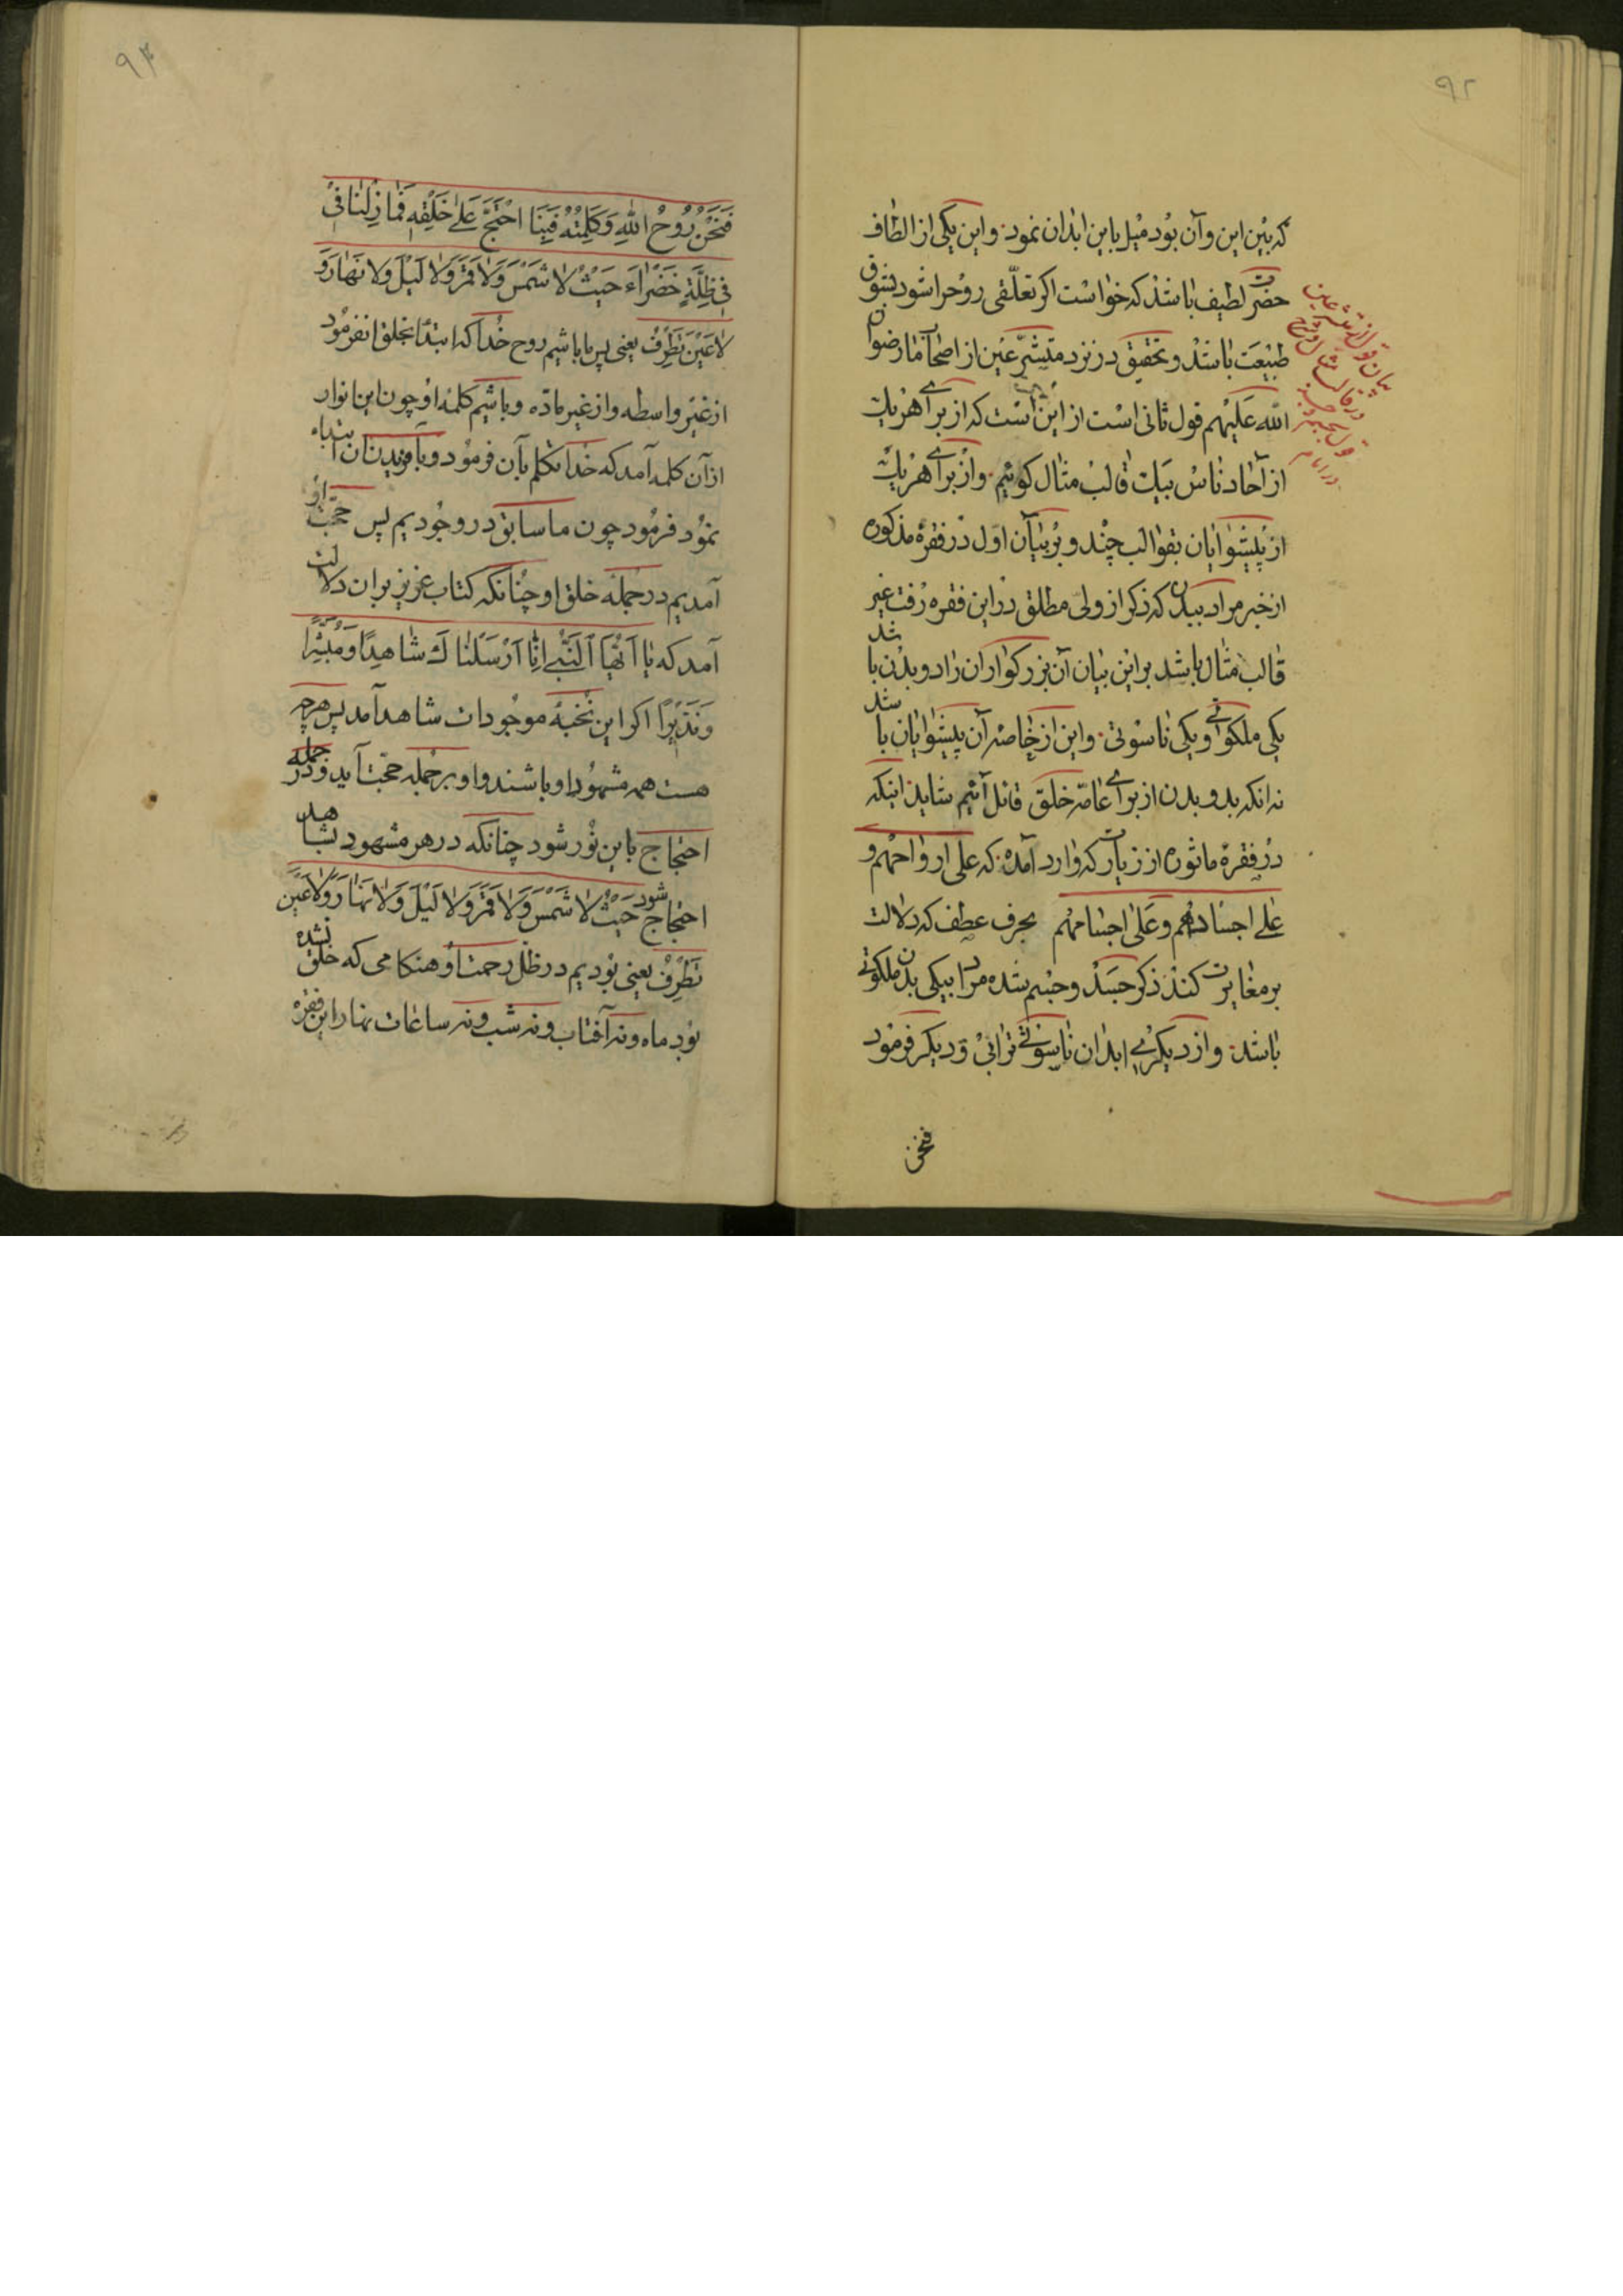 ۹۲
که بین این و آن بود میل باین ابدان نمود و این یکی از الطاف
حضرت لطیف باشد که خواست اکر تعلّقی روح را شود بشوق
طبیعت باشد و تحقیق در نزد متشرّعین از اصحاب ما رضوان
الله علیهم قول ثانی است از این است که از برای هر یک
از آحاد ناس بیک قالب مثال کوئیم و از برای هر یک
از پیشوایان بقوالب چند و بر بیان اول در فقرهٔ مذکوره
از خبر مراد ببدن که ذکر از ولی مطلق در این فقره رفت غیر
قالب مثال باشد بر این بیان آن بزرکواران را دو بدن باشد
یکی ملکوتی و یکی ناسوتی و این از خاصّه آن پیشوایان باشد
نه انکه بدو بدن از برای عامّه خلق قائل آئیم شاید اینکه
در فقرهٔ ماثوره از زیارت که وارد آمده که علی ارواحهم و
علی اجسادهم و علی اجسامهم بحرف عطف که دلالت
بر مغایرت کند ذکر جسد و جسم شده مراد بیکی بدن ملکوتی
باشد و از دیکری ابدان ناسوتی ترابی و دیکر فرمود
فنحن
بیان قول از متشرعین
در قالب مثال
۹۳
فَنَحْنُ رُوحُ اللهِ وَکَلِمَتُهُ فَبِنَا احْتَجَّ عَلی خَلْقِهِ فَمَا زِلْنَا فی
فی ظِلَّةٍ خَضْرَاءَ حَیْثُ لا شَمْسَ وَلا قَمَرَ وَلا لَیْلَ وَلا نَهَارَ وَ
لا عَیْنَ تَطْرِفُ یعنی پس ما باشیم روح خدا که ابتدا بخلق ما نفرمود
از غیر واسطه و از غیر مادّه و باشیم کلمهٔ او چون این انوار
از آن کلمه آمد که خدا تکلم بآن فرمود و بآفریدن آن ابتداء
نمود فرمود چون ما سابق در وجودیم پس حجت او
آمدیم در جملهٔ خلق او چنانکه کتاب عزیز بر ان دلالت
آمد که یا اَیُّهَا النَّبِی اِنّا اَرْسَلْنَاكَ شَاهِدًا وَمُبَشِّرًا
وَنَذِیرًا اکر این نخبهٔ موجودات شاهد آمد پس هرچه
هست همه مشهود او باشند و او بر جمله حجّت آید و در جمله
احتجاج باین نور شود چنانکه در هر مشهود بشاهد
احتجاج شود حَیْثُ لا شَمْسَ وَلا قَمَرَ وَلا لَیْلَ وَلا نَهَارَ وَلا عَیْنَ
تَطْرِفُ یعنی بودیم در ظل رحمت او هنکامی که خلق نشده
بود ماه و نه آفتاب و نه شب و نه ساعات نهار این فقره